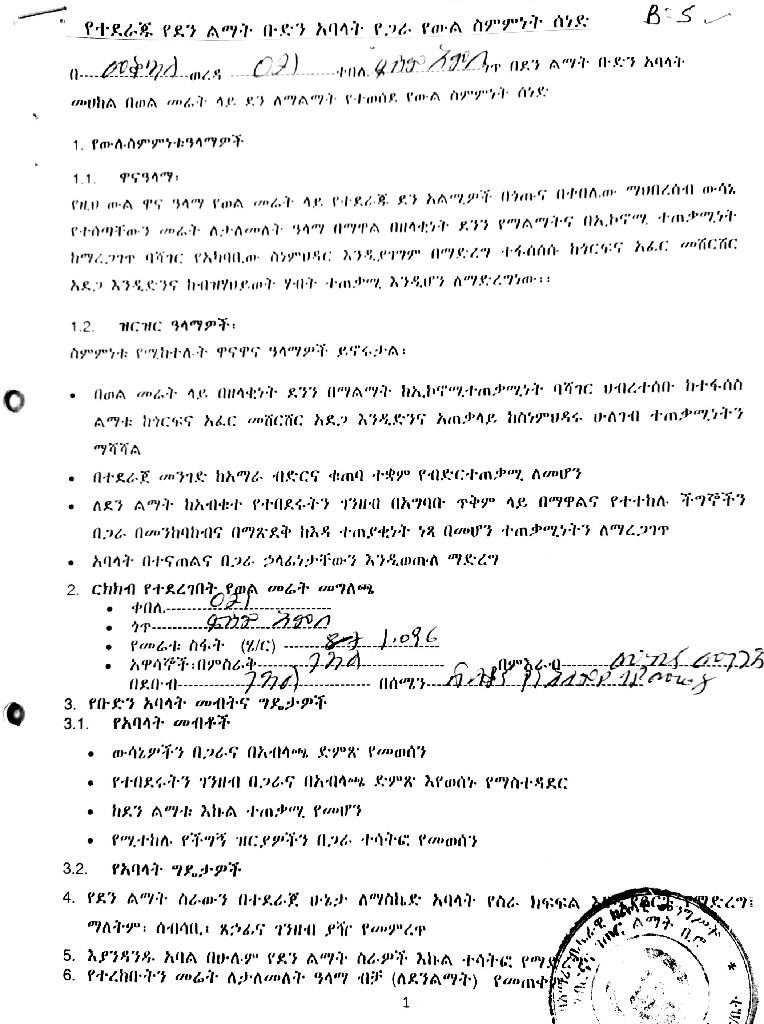 የተደራጁ የደን ልማት ቡድን አባላት የጋራ የውል ስምምነት ሰነድ B-5
በ ወረዳ ቀበሌ ጎጥ በደን ልማት ቡድን አባላት
መሀከል በወል መሬት ላይ ደን ለማልማት የተወሰደ የውል ስምምነት ሰነድ
1. የውሉስምምነቱዓላማዎች
1.1. ዋናዓላማ፡
የዚህ ውል ዋና ዓላማ የወል መሬት ላይ የተደራጁ ደን አልሚዎች በጎጡና በቀበሌው ማህበረሰብ ውሳኔ
የተሰጣቸውን መሬት ለታለመለት ዓላማ በማዋል በዘላቂነት ደንን የማልማትና በኢኮኖሚ ተጠቃሚነት
ከማረጋገጥ ባሻገር የአካባቢው ስነምህዳር እንዲያገግም በማድረግ ተፋሰሰሱ ከጎርፍና አፈር መሸርሸር
አደጋ እንዲድንና ከብዝሃህይወት ሃብት ተጠቃሚ እንዲሆን ለማድረግነው፡፡
1.2. ዝርዝር ዓላማዎች፡
ስምምነቱ የሚከተሉት ዋናዋና ዓላማዎች ይኖሩታል፡
• በወል መሬት ላይ በዘላቂነት ደንን በማልማት ከኢኮኖሚተጠቃሚነት ባሻገር ህብረተሰቡ ከተፋሰስ
ልማቱ ከጎርፍና አፈር መሸርሸር አደጋ እንዲድንና አጠቃላይ ከስነምህዳሩ ሁለገብ ተጠቃሚነትን
ማሻሻል
• በተደራጀ መንገድ ከአማራ ብድርና ቁጠባ ተቋም የብድርተጠቃሚ ለመሆን
• ለደን ልማት ከአብቁተ የተበደሩትን ገንዘብ በአግባቡ ጥቅም ላይ በማዋልና የተተከሉ ችግኞችን
በጋራ በመንከባከብና በማጽደቅ ከእዳ ተጠያቂነት ነጻ በመሆን ተጠቃሚነትን ለማረጋገጥ
• አባላት በተናጠልና በጋራ ኃላፊነታቸውን እንዲወጡለ ማድረግ
2. ርክክብ የተደረገበት የወል መሬት መግለጫ
• ቀበሌ
• ጎጥ
• የመሬቱ ስፋት (ሄ/ር) 1.096
• አዋሳኞች፡በምስራቅ በምእራብ
በደቡብ በሰሜን
3. የቡድን አባላት መብትና ግዴታዎች
3.1. የአባላት መብቶች
• ውሳኔዎችን በጋራና በአብላጫ ድምጽ የመወሰን
• የተበደሩትን ገንዘብ በጋራና በአብላጫ ድምጽ እየወሰኑ የማስተዳደር
• ከደን ልማቱ እኩል ተጠቃሚ የመሆን
• የሚተከሉ የችግኝ ዝርያዎችን በጋራ ተሳትፎ የመወሰን
3.2. የአባላት ግዴታዎች
4. የደን ልማት ስራውን በተደራጀ ሁኔታ ለማስኬድ አባላት የስራ ክፍፍል የማድረግ፤
ማለትም፡ ሰብሳቢ፤ ጸኃፊና ገንዘብ ያዥ የመምረጥ
5. እያንዳንዱ አባል በሁሉም የደን ልማት ስራዎች እኩል ተሳትፎ
6. የተረከቡትን መሬት ለታለመለት ዓላማ ብቻ (ለደንልማት)
1